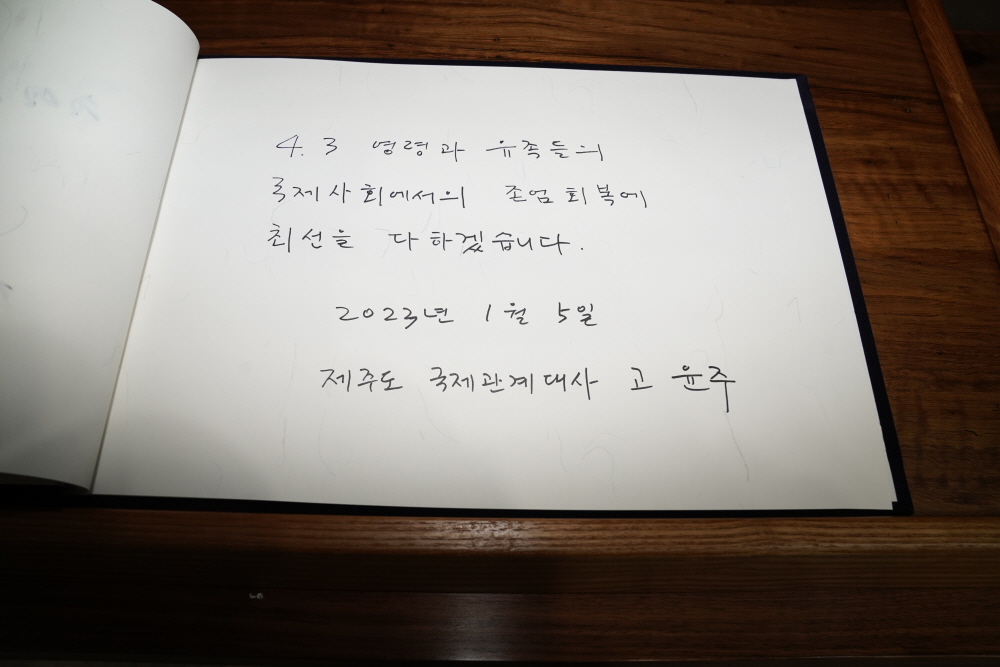 4.3 영령과 유족들의
국제사회에서의 존엄회복에
최선을 다하겠습니다.
2023년 1월 5일
제주도 국제관계대사 고윤주